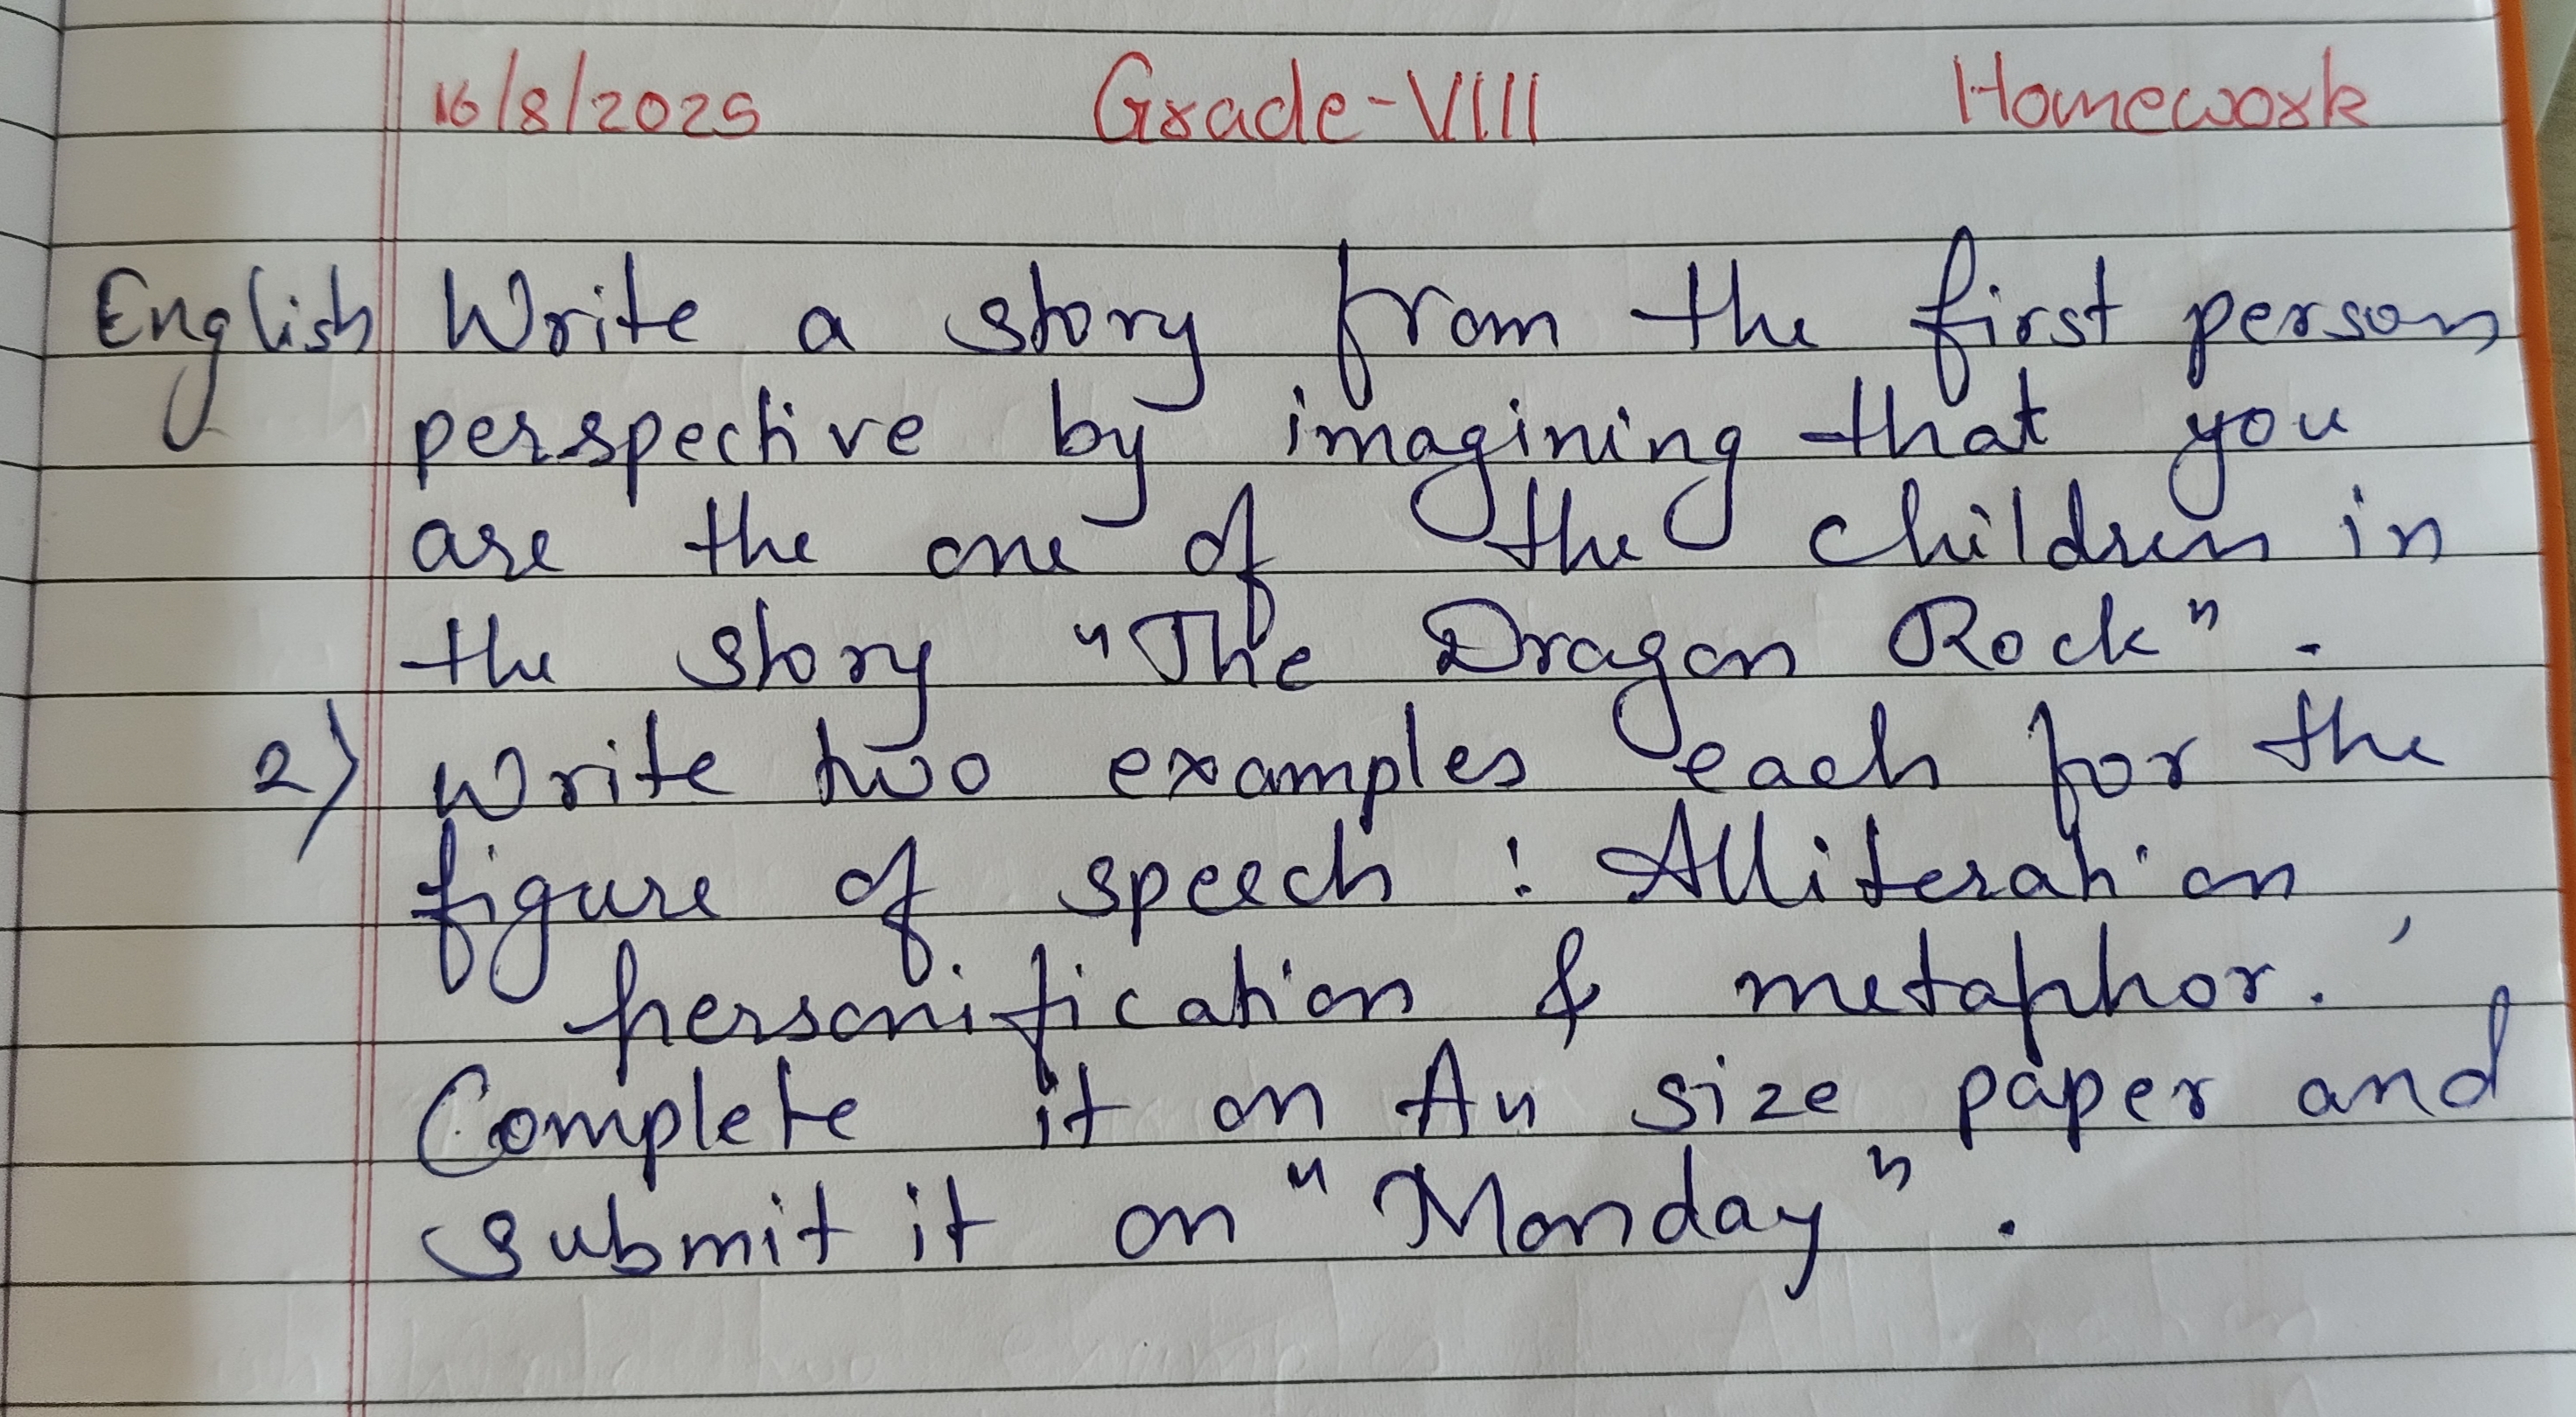 16/8/2025 Grade-VIII Homework
English Write a story from the first person
perspective by imagining that you
are the one of the children in
the story "The Dragon Rock".
2) Write two examples each for the
figure of speech : Alliteration,
personification & metaphor.
Complete it on A4 size paper and
submit it on "Monday".